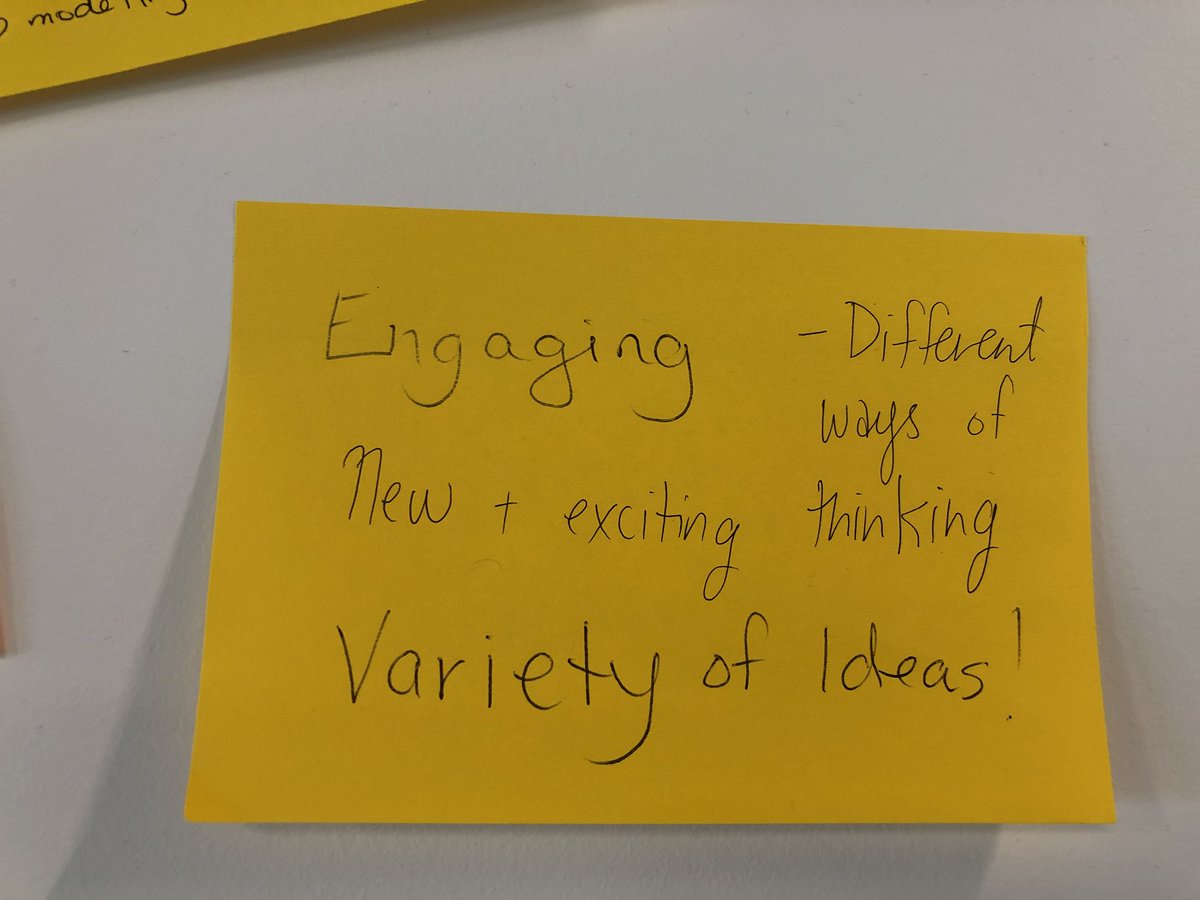 modeling
Engaging
New + exciting
Variety of Ideas!
- Different
ways of
thinking